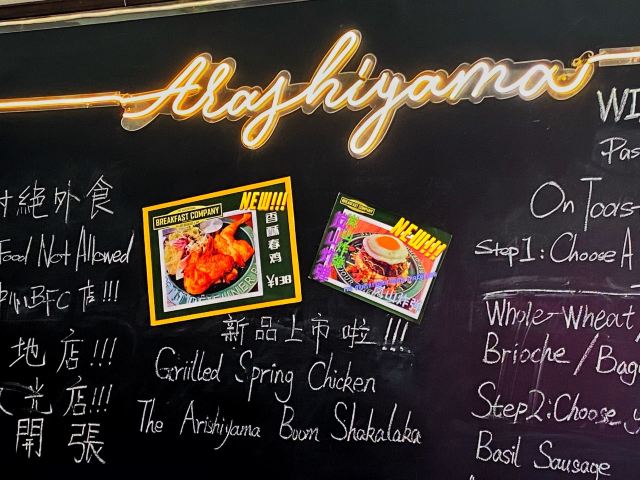 Arashiyama
謝絕外食
Food Not Allowed
BFC店!!!
地店!!!
光店!!!
開張
BREAKFAST COMPANY
NEW!!!
香煎春雞
BREAKFAST COMPANY
NEW!!!
新品上市啦!!!
Griilled Spring Chicken
The Arishiyama Boom Shakalaka
On Toas
Step1: Choose A
Whole-Wheat/
Brioche/Bag
Step2: Choose y
Basil Sausage